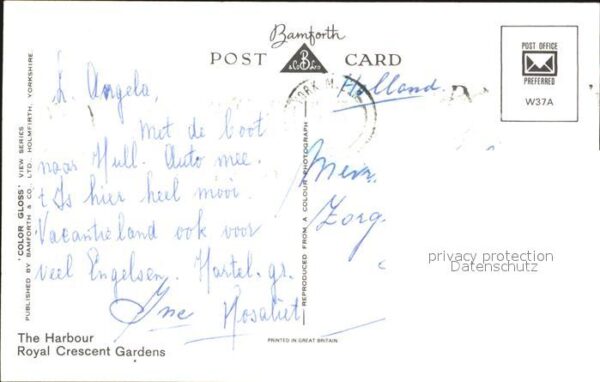 Bamforth
POST CARD
& Co B Ltd
POST OFFICE
PREFERRED
W37A
Holland.
L. Angela,
Met de boot
naar Hull. Auto mee.
't Is hier heel mooi.
Vacantieland ook voor
veel Engelsen. Hartel. gr.
Ine
Mevr.
Zorg.
privacy protection
Datenschutz
"COLOR GLOSS" VIEW SERIES
PUBLISHED BY BAMFORTH & CO. LTD., HOLMFIRTH, YORKSHIRE
REPRODUCED FROM A COLOUR PHOTOGRAPH
The Harbour
Royal Crescent Gardens
PRINTED IN GREAT BRITAIN